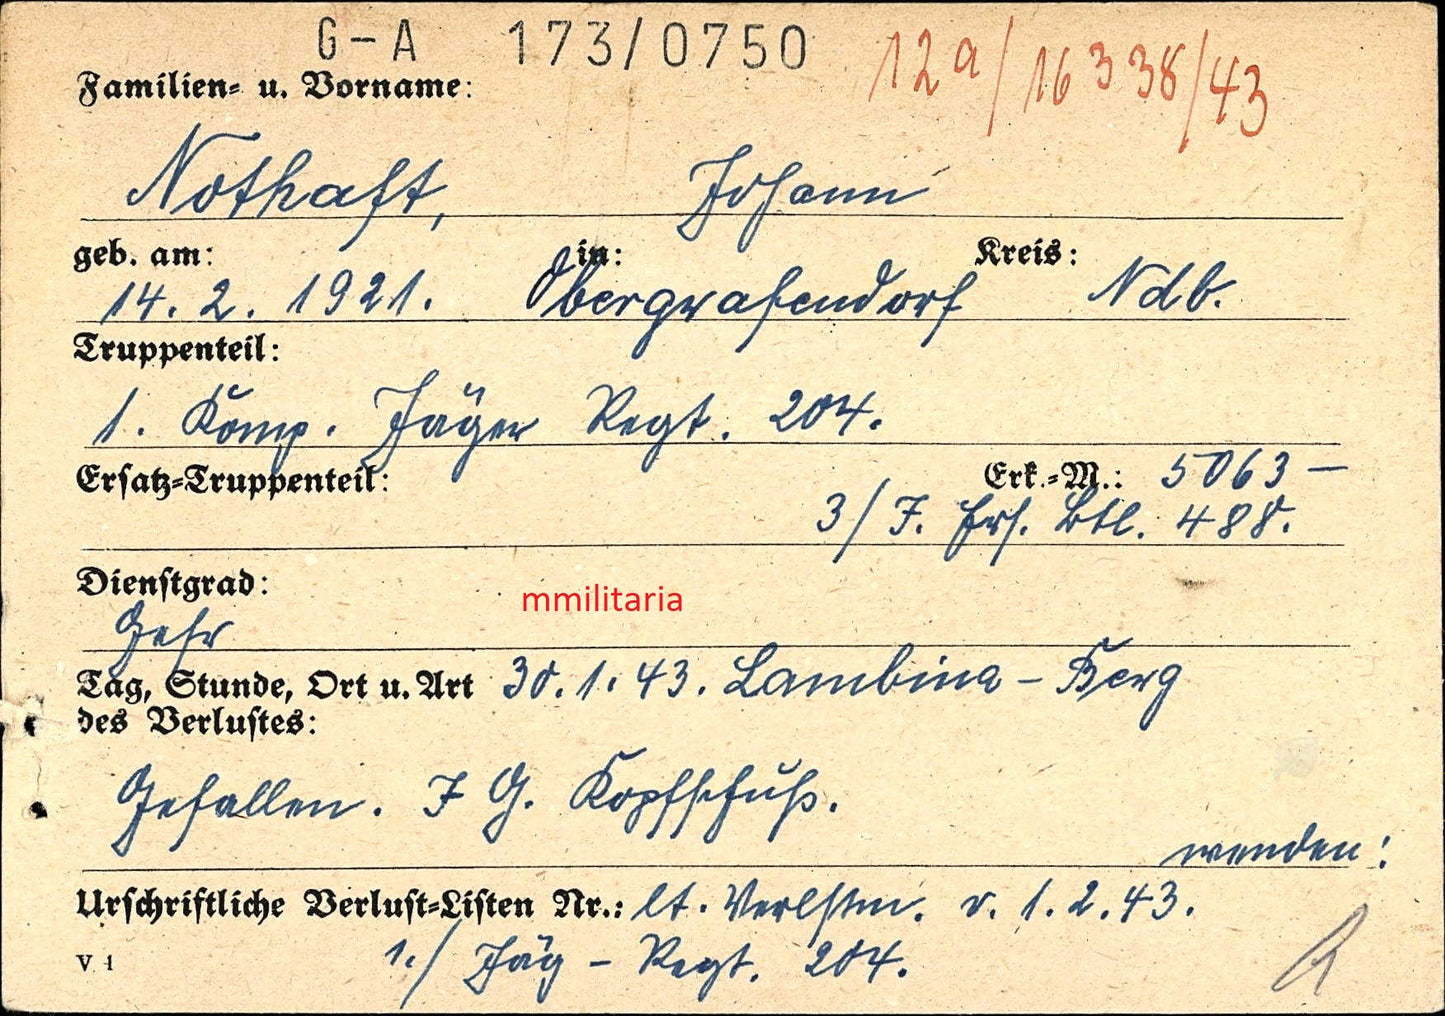 G-A 173/0750 12a/16338/43
Familien- u. Vorname:
Nothaft, Johann
geb. am: in: Kreis:
14. 2. 1921. Obergrafendorf Ndb.
Truppenteil:
1. Komp. Jäger Regt. 204.
Ersatz-Truppenteil: Erk.-M.: 5063 –
3/ I. Ers. Btl. 488.
Dienstgrad:
Gefr
mmilitaria
Tag, Stunde, Ort u. Art 30. 1. 43. Lambina - Berg
des Verlustes:
Gefallen. I G. Kopfschuß.
wenden!
Urschriftliche Verlust-Listen Nr.: lt. Verlstm. v. 1. 2. 43.
V 1 1./ Jäg - Regt. 204.